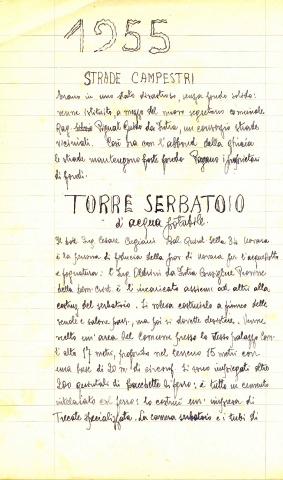 1955
STRADE CAMPESTRI
Erano in uno stato disastroso, senza fondo solido:
venne istituito, a mezzo del nuovo segretario comunale
Rag. Pignat Guido da Istria, un consorzio strade
vicinali. Così ora con l'abbond. della ghiaia
le strade mantengono forte fondo. Pagano i proprietari
di fondi.
TORRE SERBATOIO
d'acqua potabile.
Il Dott. Ing. Cesare
è la persona di fiducia della prov. di Novara per l'acquedotto
e fognatura: l'Ing. da Consigliere Provinc.
della Dem. Crist. è l'incaricato assieme ad altri alla
costruz. del serbatoio. Si voleva costruirlo a fianco delle
scuole e salone parr., ma poi si dovette desistere. Venne
scelto un'area del Comune presso lo stesso palazzo Com.
è alto 17 metri, profondo nel terreno 15 metri con
una base di 20 m. di circonf. Si sono impiegati oltre
200 quintali di bacchette di ferro: è tutto in cemento
col ferro: lo costruì un'impresa di
Trecate specializzata. La camera serbatoio e i tubi di